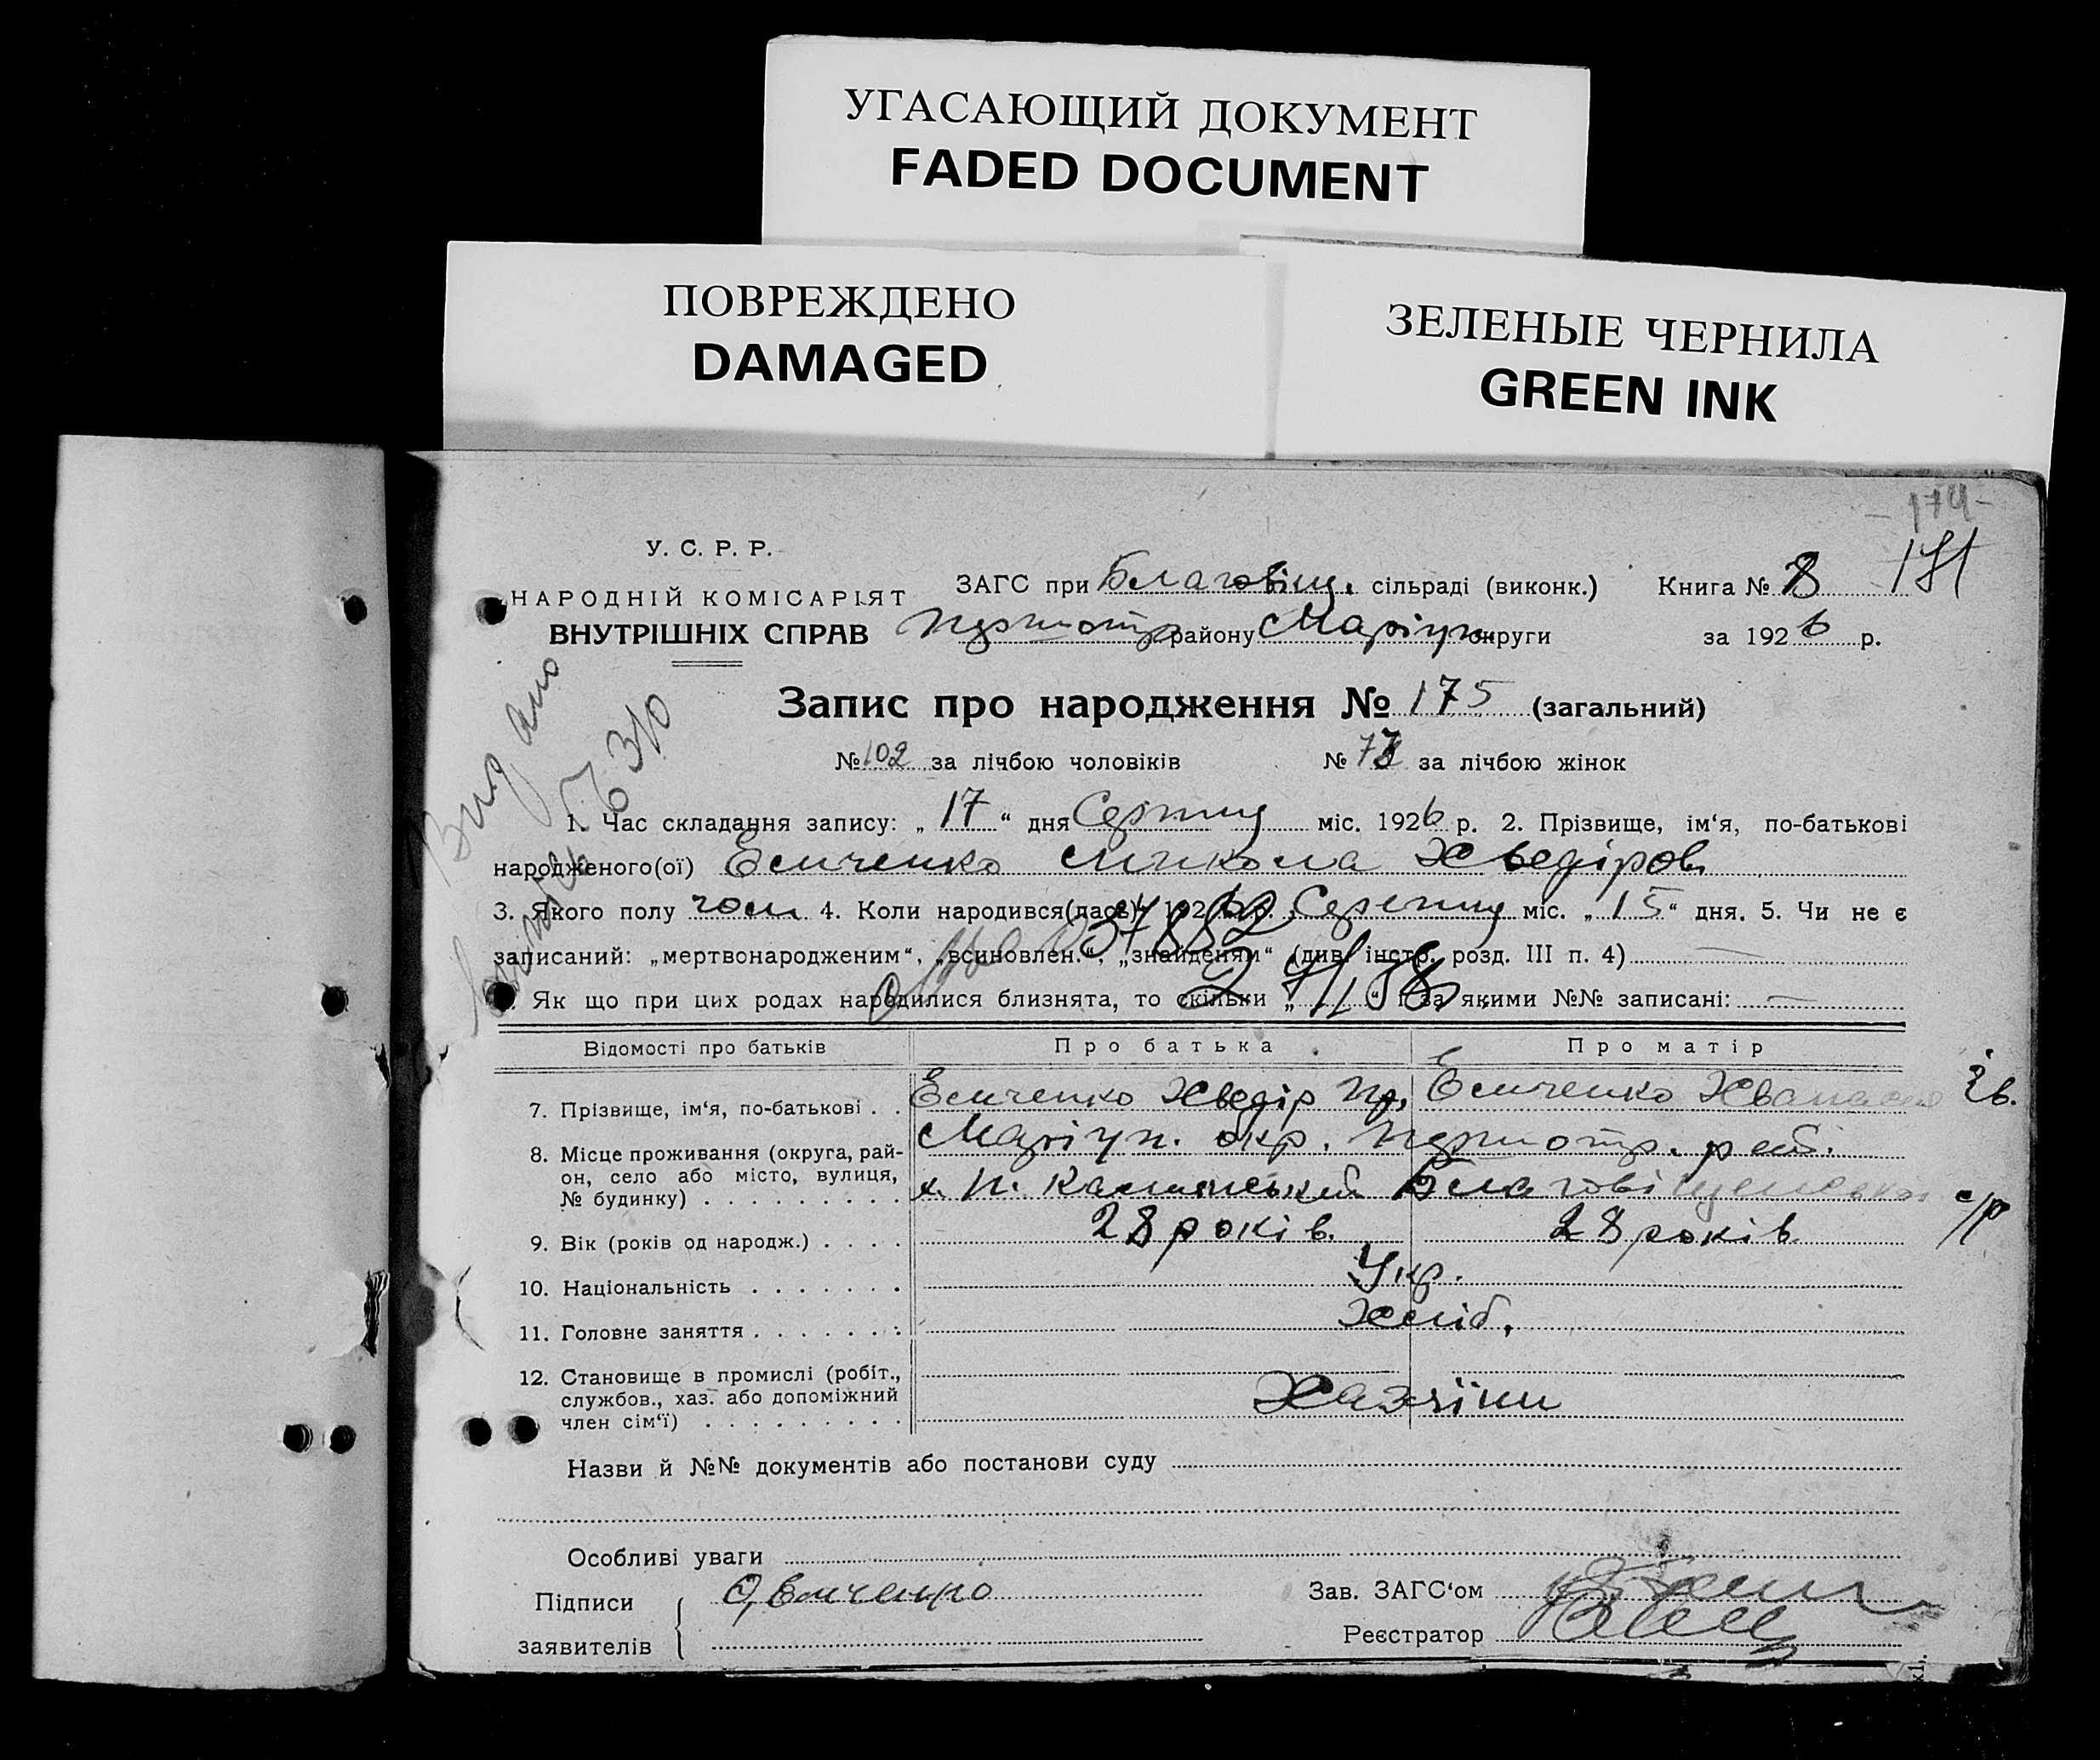 УГАСАЮЩИЙ ДОКУМЕНТ
FADED DOCUMENT
ПОВРЕЖДЕНО
DAMAGED
ЗЕЛЕНЫЕ ЧЕРНИЛА
GREEN INK
-174-
У. С. Р. Р.
НАРОДНІЙ КОМІСАРІЯТ
ВНУТРІШНІХ СПРАВ
ЗАГС при Благовіщ. сільраді (виконк.) Книга № 8 181
району Маріуп. округи за 1926 р.
Запис про народження № 175 (загальний)
№ 102 за лічбою чоловіків № 73 за лічбою жінок
Видано
1. Час складання запису: „ 17 “ дня Серпня міс. 1926 р. 2. Прізвище, ім‘я, по-батькові
народженого(ої) Емченко Микола Хведіров.
3. Якого полу чол. 4. Коли народився(лась) 1926 р. Серпня міс. „ 15 “ дня. 5. Чи не є
записаний: „мертвонародженим“, „всиновлен.“, „знайденям“ (див. інстр. розд. III п. 4)
Як що при цих родах народилися близнята, то скільки „ “ і за якими №№ записані:
Відомості про батьків Про батька Про матір
7. Прізвище, ім‘я, по-батькові . . Емченко Хведір Емченко
8. Місце проживання (округа, рай-
он, село або місто, вулиця,
№ будинку) . . . . . . . . .
Маріуп. окр.
Благовіщенської с/р
9. Вік (років од народж.) . . . . 28 років. 28 років
10. Національність . . . . . . . Укр.
11. Головне заняття . . . . . . . Хліб.
12. Становище в промислі (робіт.,
службов., хаз. або допоміжний
член сім‘ї) . . . . . . . . .
Хазяїни
Назви й №№ документів або постанови суду
Особливі уваги
Підписи
заявителів
Емченко
Зав. ЗАГС‘ом
Реєстратор